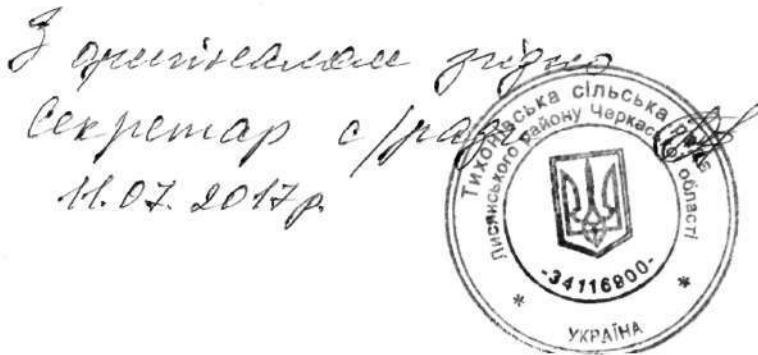 З оригіналом згідно
Секретар с/ради
11.07.2017р.
Тихонівська сільська рада
Лисянського району Черкаської області
-34116900-
* УКРАЇНА *